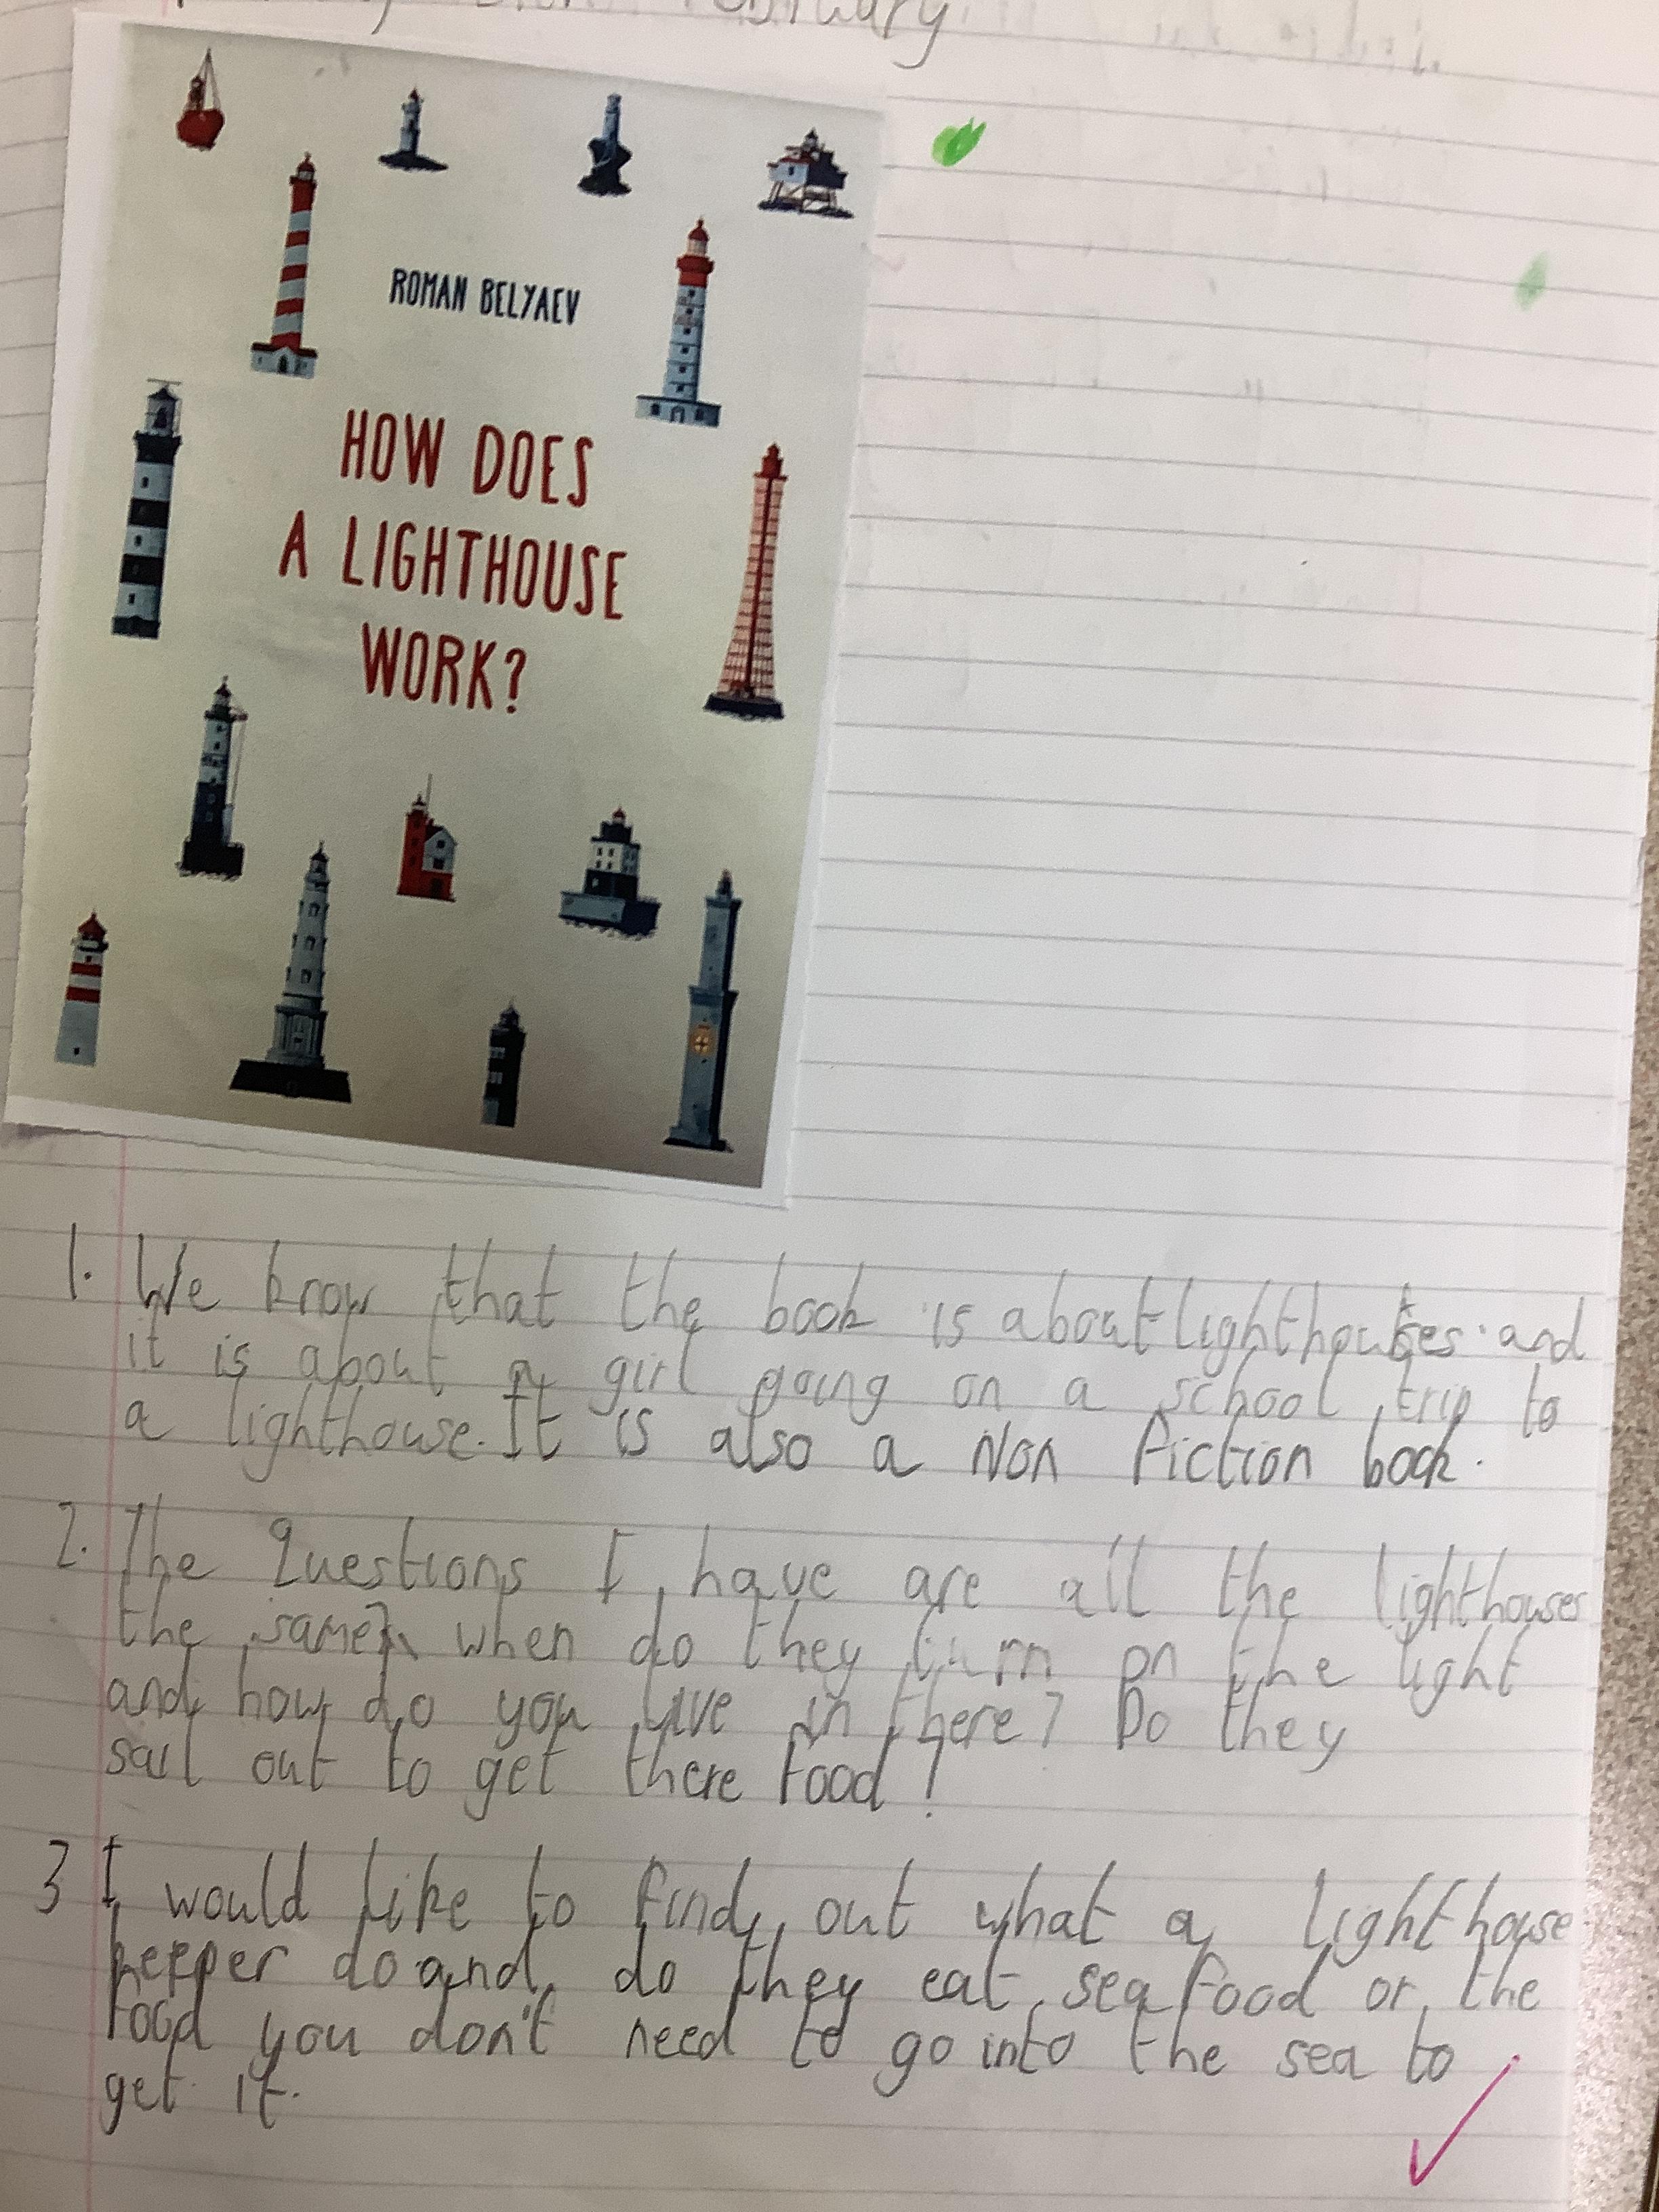 ROMAN BELYAEV
HOW DOES
A LIGHTHOUSE
WORK?
1. We know that the book is about lighthouses and
it is about a girl going on a school trip to
a lighthouse. It is also a Non fiction book.
2. The Questions I have are all the lighthouses
the same? when do they turn on the light
and how do you live in there? Do they
sail out to get there food?
3 I would like to find out what a lighthouse
keeper do and do they eat sea food or the
food you don't need to go into the sea to
get it.